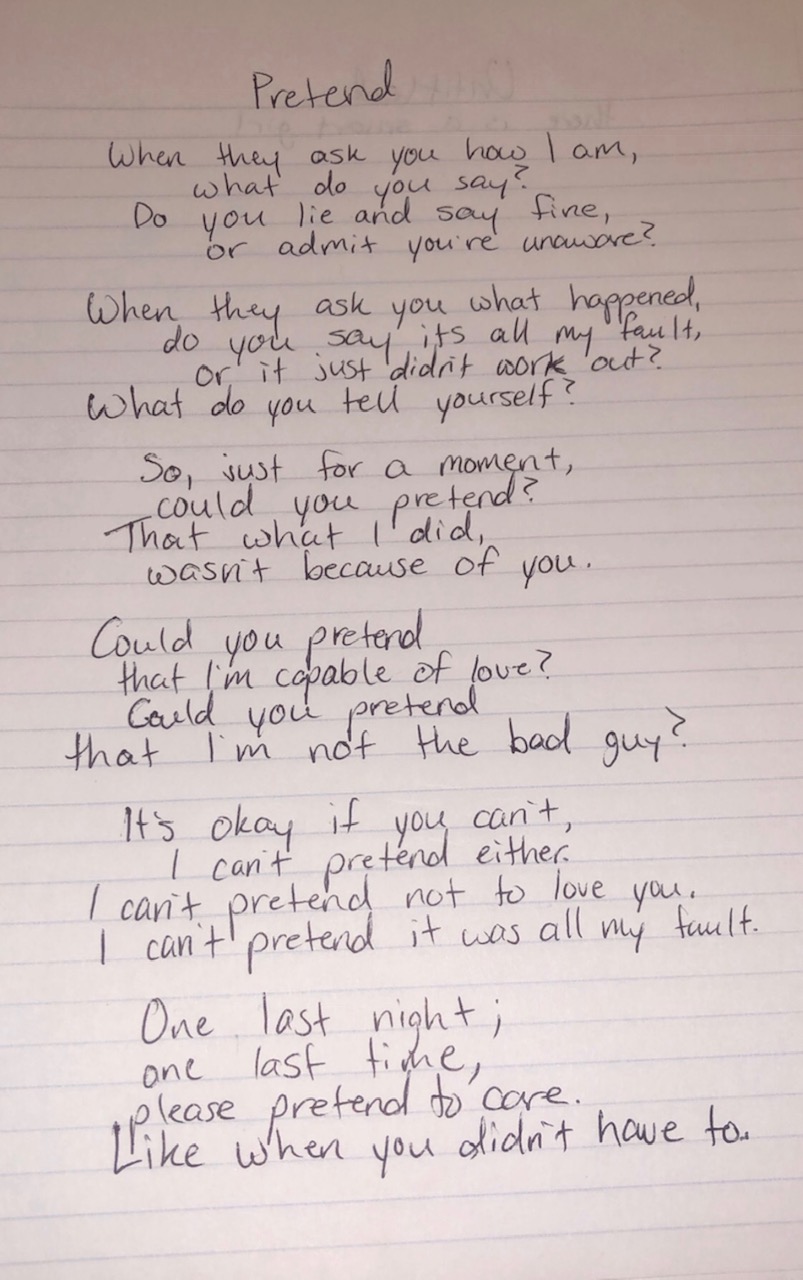 Pretend
When they ask you how I am,
what do you say?
Do you lie and say fine,
or admit you're unaware?
When they ask you what happened,
do you say its all my fault,
or it just didn't work out?
What do you tell yourself?
So, just for a moment,
could you pretend?
That what I did,
wasn't because of you.
Could you pretend
that I'm capable of love?
Could you pretend
that I'm not the bad guy?
It's okay if you can't,
I can't pretend either.
I can't pretend not to love you.
I can't pretend it was all my fault.
One last night;
one last time,
please pretend to care.
Like when you didn't have to.